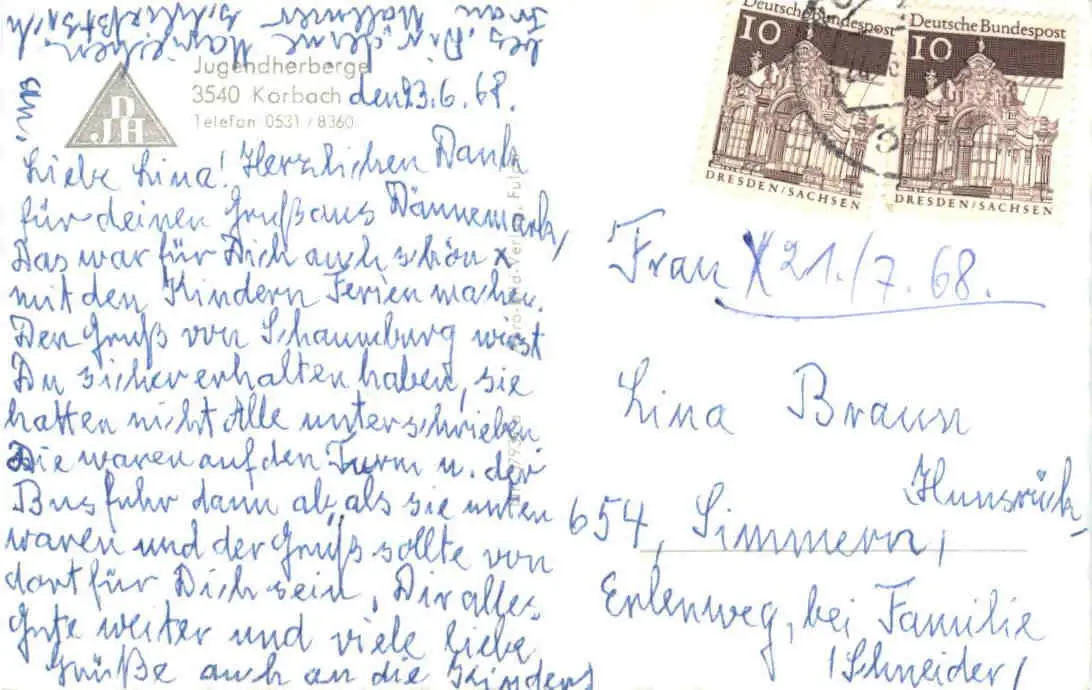 Jugendherberge
3540 Korbach den 23.6.68.
Telefon 0531 / 8360
DJH
Liebe Lina! Herzlichen Dank
für deinen Gruß aus Dännemark,
Das war für Dich auch schön
mit den Kindern Ferien machen.
Den Gruß von Schaumburg wirst
Du sicher erhalten haben, sie
hatten nicht Alle unterschrieben
Die waren auf den Turm u. der
Bus fuhr dann ab, als sie unten
waren und der Gruß sollte von
dort für Dich sein, Dir alles
Gute weiter und viele liebe
Grüße auch an die Kinder
an
Frau
Deutsche Bundespost
10
DRESDEN/SACHSEN
Deutsche Bundespost
10
DRESDEN/SACHSEN
Frau X 21./7.68.
Lina Braun
Hunsrück
654, Simmern,
Erlenweg, bei Familie
(Schneider)